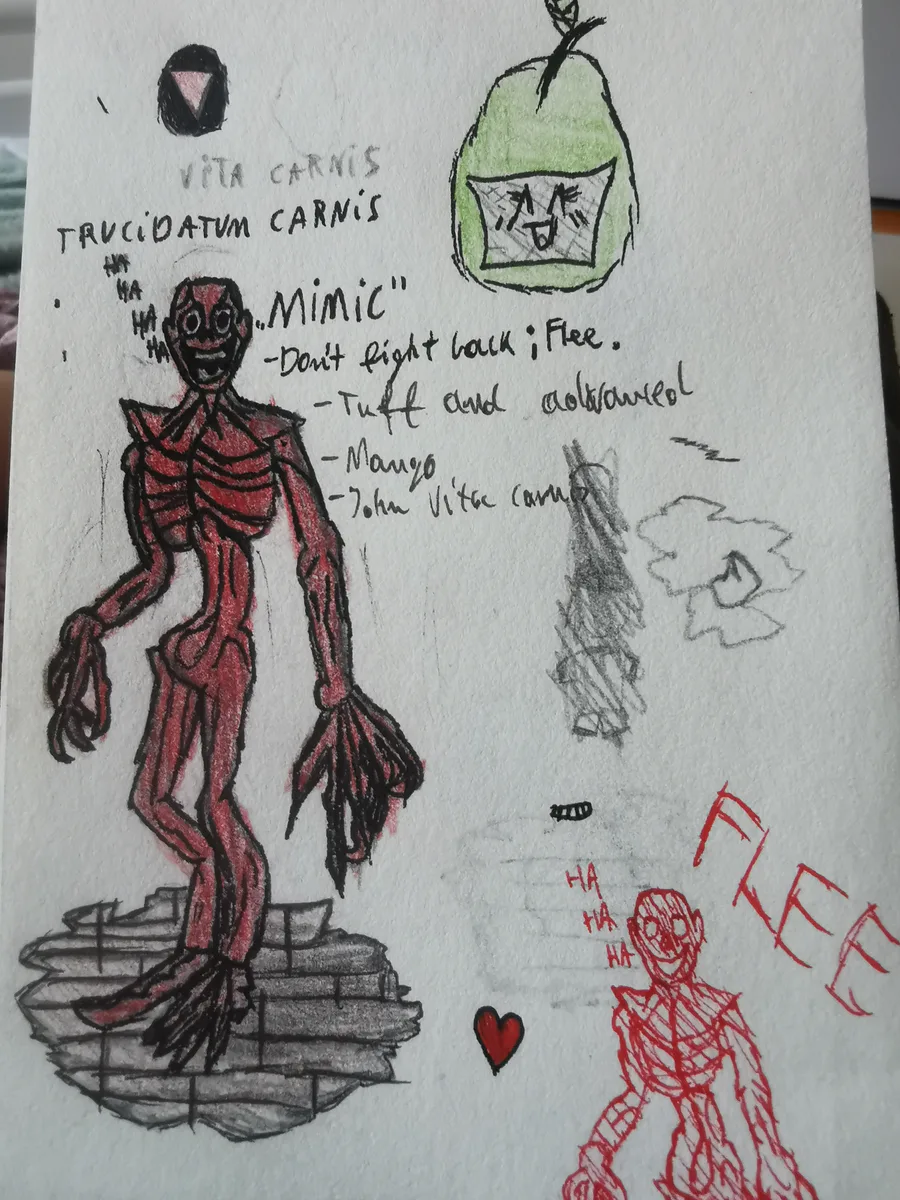 ViTA CARNiS
TRUCiDATUM CARNiS
HA
HA
HA
HA
„MiMiC"
-Don't fight back ; Flee.
- Tuff and
- Mango
- John Vita carnis
HA
HA
HA
FLEE